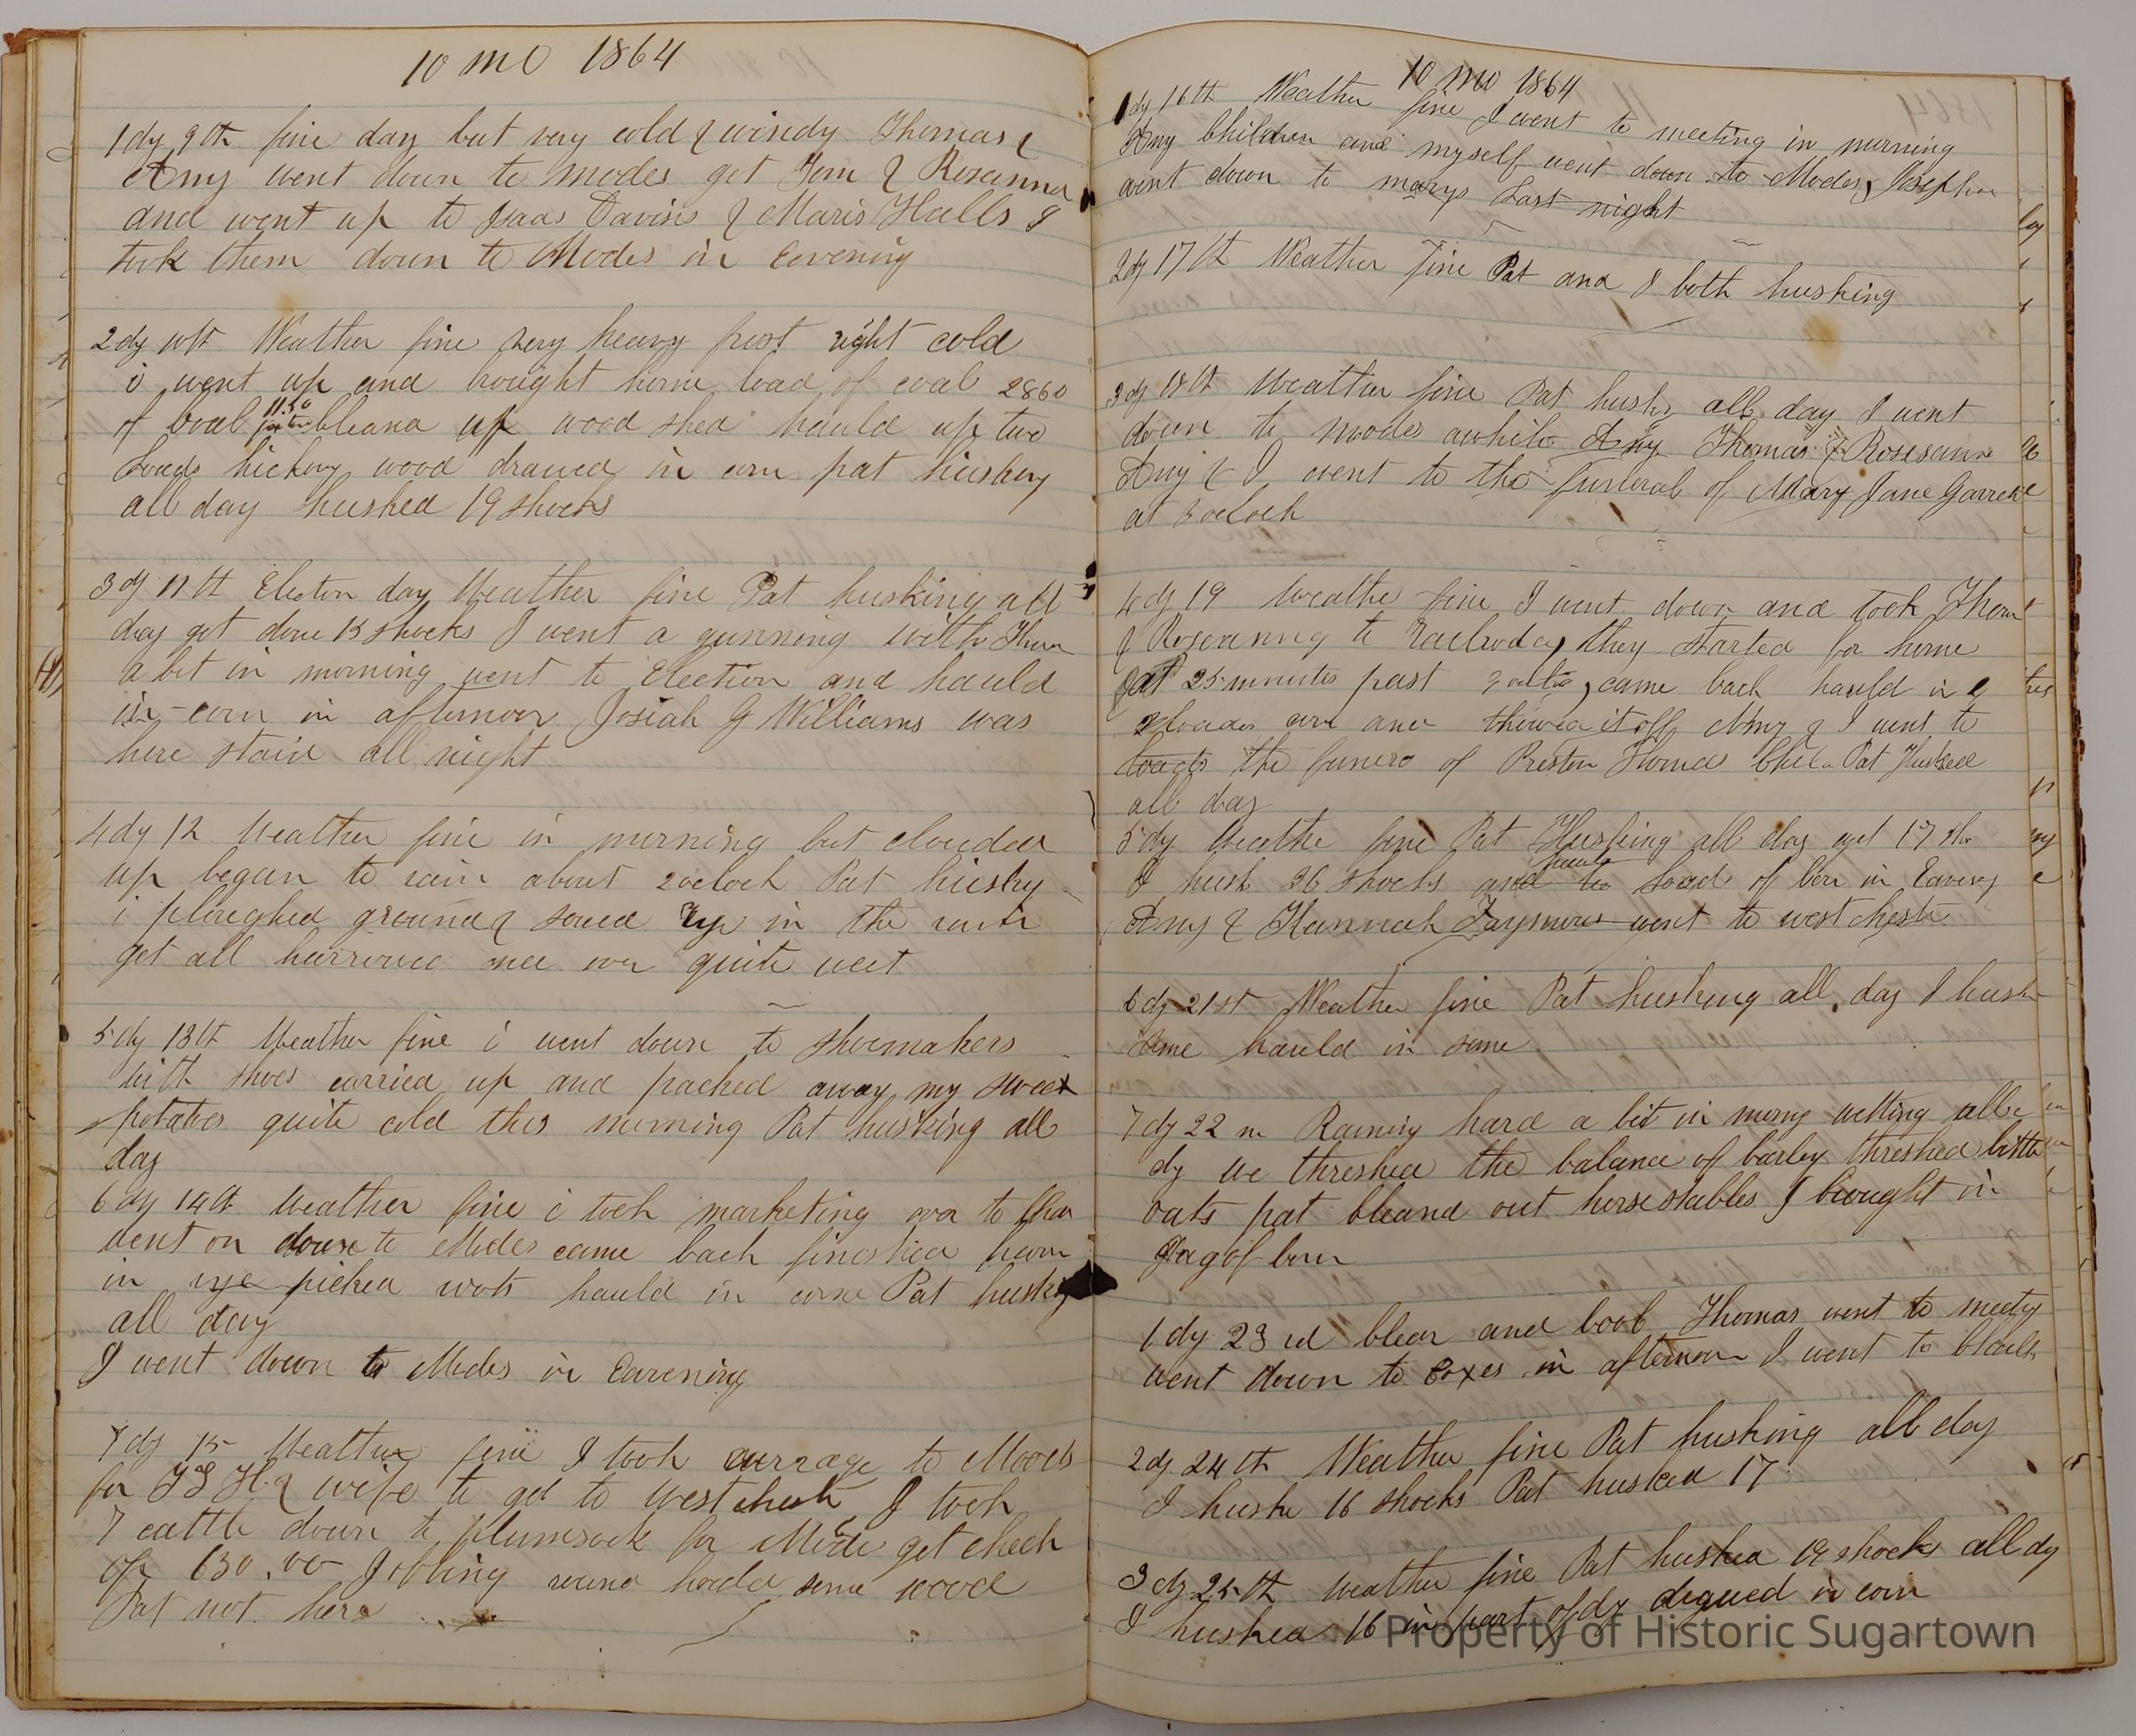 10 mo 1864
1 dy 9th fine day but very cold & windy Thomas &
Amy went down to Modes get Tom & Rosanna
and went up to Isaac Davis & Maris Halls I
took them down to Modes in Eavening
2 dy 10th Weather fine very heavy frost right cold
i went up and brought home load of coal 2860
of Coal 11.50 per ton Cleand up wood shed hauld up two
Loads hickory wood drawed in corn pat husking
all day husked 19 shocks
3 dy 11th Election day Weather fine Pat husking all
day got done 13 shocks I went a gunning with Thom
a bit in morning went to Election and hauld
in corn in afternoon Josiah G Williams was
here staid all night
4 dy 12 Weather fine in morning but clouded
up began to rain about 2 oclock Pat husky
i ploughed ground & sowed Rye in the
get all harrowed once over quite wet
5 dy 13th Weather fine i went down to Shoemakers
with shoes carried up and packed away my sweet
potatoes quite cold this morning Pat husking all
day
6 dy 14th Weather fine i took marketing over to
went on down to Modes came back finished harrow
in rye picked hauld in corn Pat husky
all day
I went down to Modes in Eavening
7 dy 15 Weather fine I took carrage to Modes
for T S H & wife to go to Westchester I took
7 cattle down to plumsock for Mode get check
of 630.00 Jobbing round some wood
Pat not here
10 mo 1864
1 dy 16th Weather fine I went to meeting in morning
Amy Children and myself went down to Modes, Josephin
went down to marys Last night
2 dy 17th Weather fine Pat and I both husking
3 dy 18th Weather fine Pat husk all day I went
down to Modes awhile Amy Thomas & Roseanna
Amy & I went to the funeral of Mary Jane Garrett
at 3 oclock
4 dy 19 Weathe fine I went down and took Thom
& Roseanna to they started for home
at 25 minutes past came back hauld in
2 loads corn and it off Amy & I went to
the of Preston Child Pat Husked
all day
5 dy Weathe fine Pat Husking all day get 17 sho
I husk 26 shocks and hauld load of Corn in Eaveng
Amy & Hannah went to westchester
6 dy 21st Weather fine Pat husking all day I husk
some hauld in some
7 dy 22 Raining hard a bit in morng wetting all
dy we threshed the balance of barley threshed little
oats pat Cleand out horse stables I brought in
Jag of Corn
1 dy 23 rd Clear and Cool Thomas went to meetg
went down to Coxes in afternoon I went to
2 dy 24th Weather fine Pat husking all day
I huske 16 shocks Pat husked 17
3 dy 25th Weather fine Pat husked 19 shocks all dy
I husked 16 in part of dy in corn
Property of Historic Sugartown